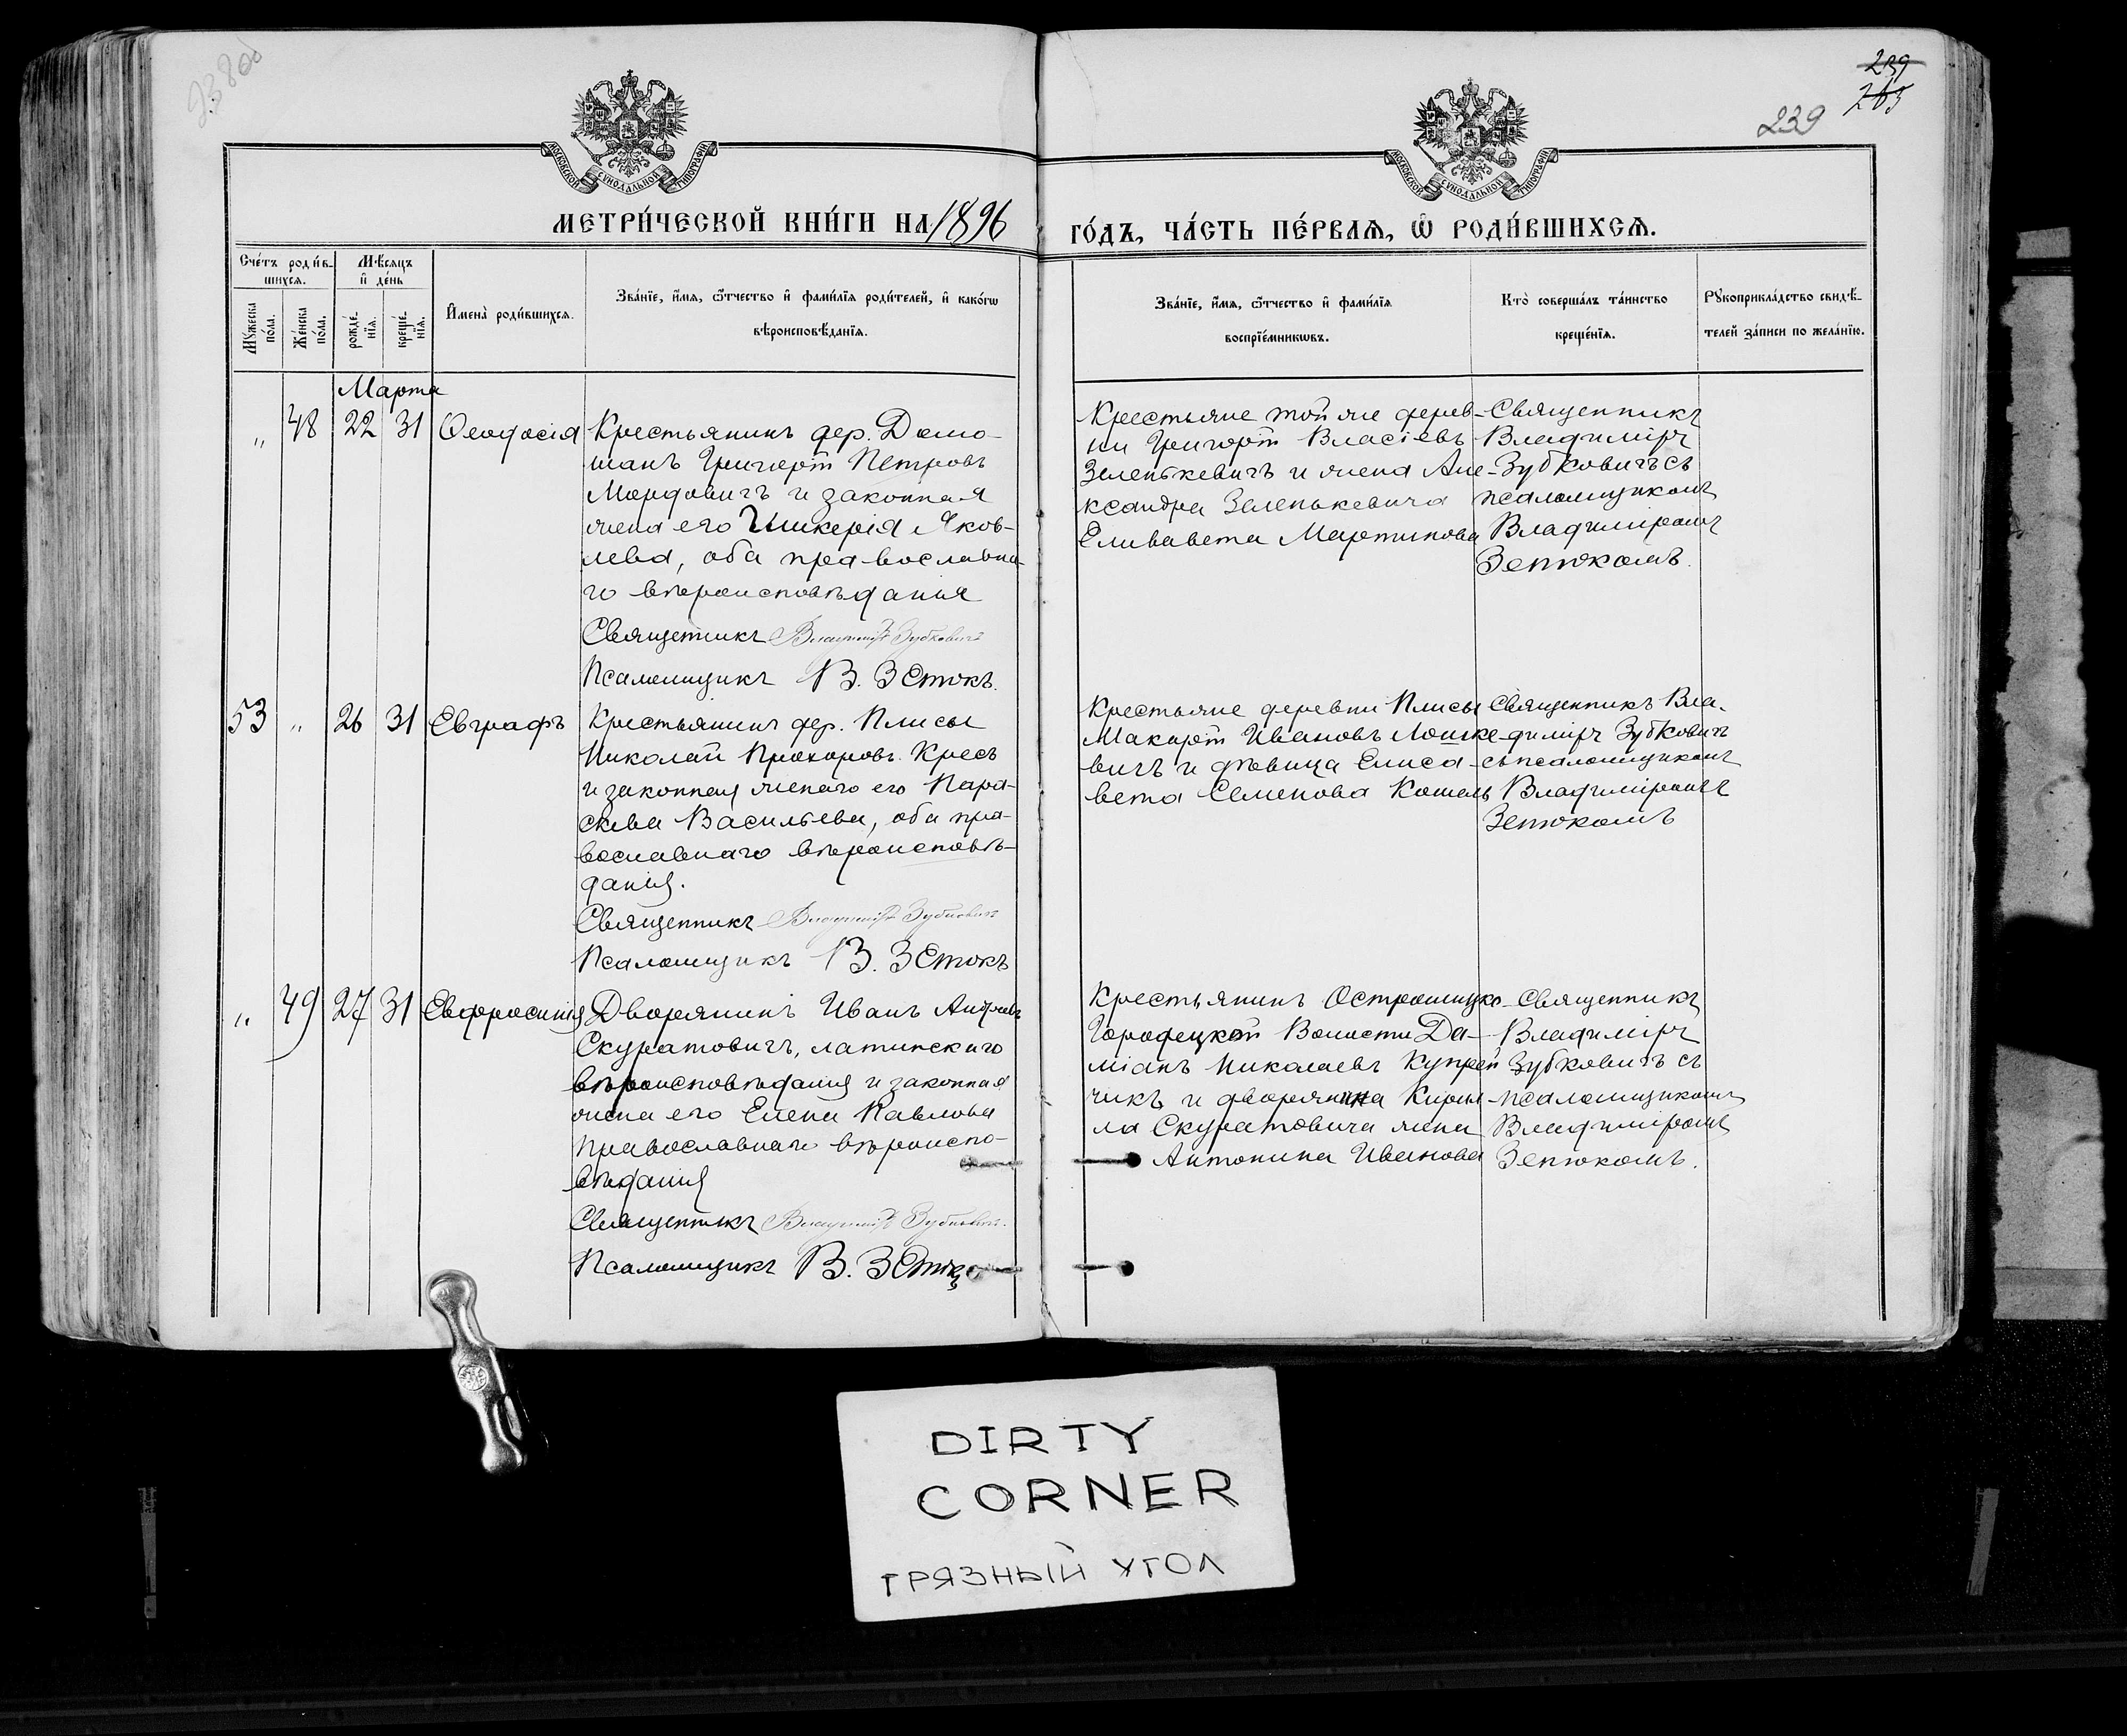 238об
239
265
239
МОСКОВСКОЙ СѴНОДАЛЬНОЙ ТИПОГРАФІИ
МОСКОВСКОЙ СѴНОДАЛЬНОЙ ТИПОГРАФІИ
МЕТРИ́ЧЕСКОЙ КНИ́ГИ НА 1896
ГО́ДЪ, ЧА́СТЬ ПЕ́РВАѦ, Ѽ РОДИ́ВШИХСѦ.
Сче́тъ роди́в-
шихсѧ.
Мѣ́сѧцъ
и҆ де́нь
Мꙋ́жеска
по́ла.
Же́нска
по́ла.
рожде́-
нїѧ.
креще́-
нїѧ.
И҆мена̀ роди́вшихсѧ.
Зва́нїе, и҆́мѧ, ѻ҆́тчество и҆ фами́лїѧ роди́телей, и҆ како́гѡ
вѣроисповѣ́данїѧ.
Зва́нїе, и҆́мѧ, ѻ҆́тчество и҆ фами́лїѧ
воспрїе́мникѡвъ.
Кто̀ соверша́лъ та́инство
креще́нїѧ.
Рꙋкоприкла́дство свидѣ́-
телей за́писи по жела́нїю.
Марта
„ 48 22 31 Ѳеодосія
Крестьянинъ дер. Домо-
шанъ Григорій Петровъ
Мордовичъ и законная
жена его Гликерія Яков-
лева, оба православна-
го вѣроисповѣданія
Священникъ Владиміръ Зубковичъ
Псаломщикъ В. Зенюкъ.
Крестьяне той же дерев-
ни Григорій Власіевъ
Зенькевичъ и жена Але-
ксандра Зеленькевича
Елизавета Мартинова
Священникъ
Владиміръ
Зубковичъ съ
псаломщикомъ
Владиміромъ
Зенюкомъ.
53 „ 26 31 Евграфъ
Крестьянинъ дер. Плисы
Николай Прохоровъ Кресъ
и законная жена его Пара-
скева Васильева, оба пра-
вославнаго вѣроисповѣ-
данія.
Священникъ Владиміръ Зубковичъ
Псаломщикъ В. Зенюкъ
Крестьяне деревни Плисы
Макарій Ивановъ Лошке-
вичъ и дѣвица Елиса-
вета Семенова Кошель
Священникъ Вла-
диміръ Зубковичъ
съ псаломщикомъ
Владиміромъ
Зенюкомъ
„ 49 27 31 Евфросинія
Дворянинъ Иванъ
Скуратовичъ, латинскаго
вѣроисповѣданія и законная
жена его Елена Павлова
православнаго вѣроиспо-
вѣданія
Священникъ Владиміръ Зубковичъ.
Псаломщикъ В. Зенюкъ
Крестьянинъ Острошицко-
Городецкой Волости Да-
міанъ Николаевъ Купрей
чикъ и дворянина Кирил-
ла Скуратовича жена
Антонина Иванова
Священникъ
Владиміръ
Зубковичъ съ
псаломщикомъ
Владиміромъ
Зенюкомъ.
DIRTY
CORNER
ГРЯЗНЫЙ УГОЛ